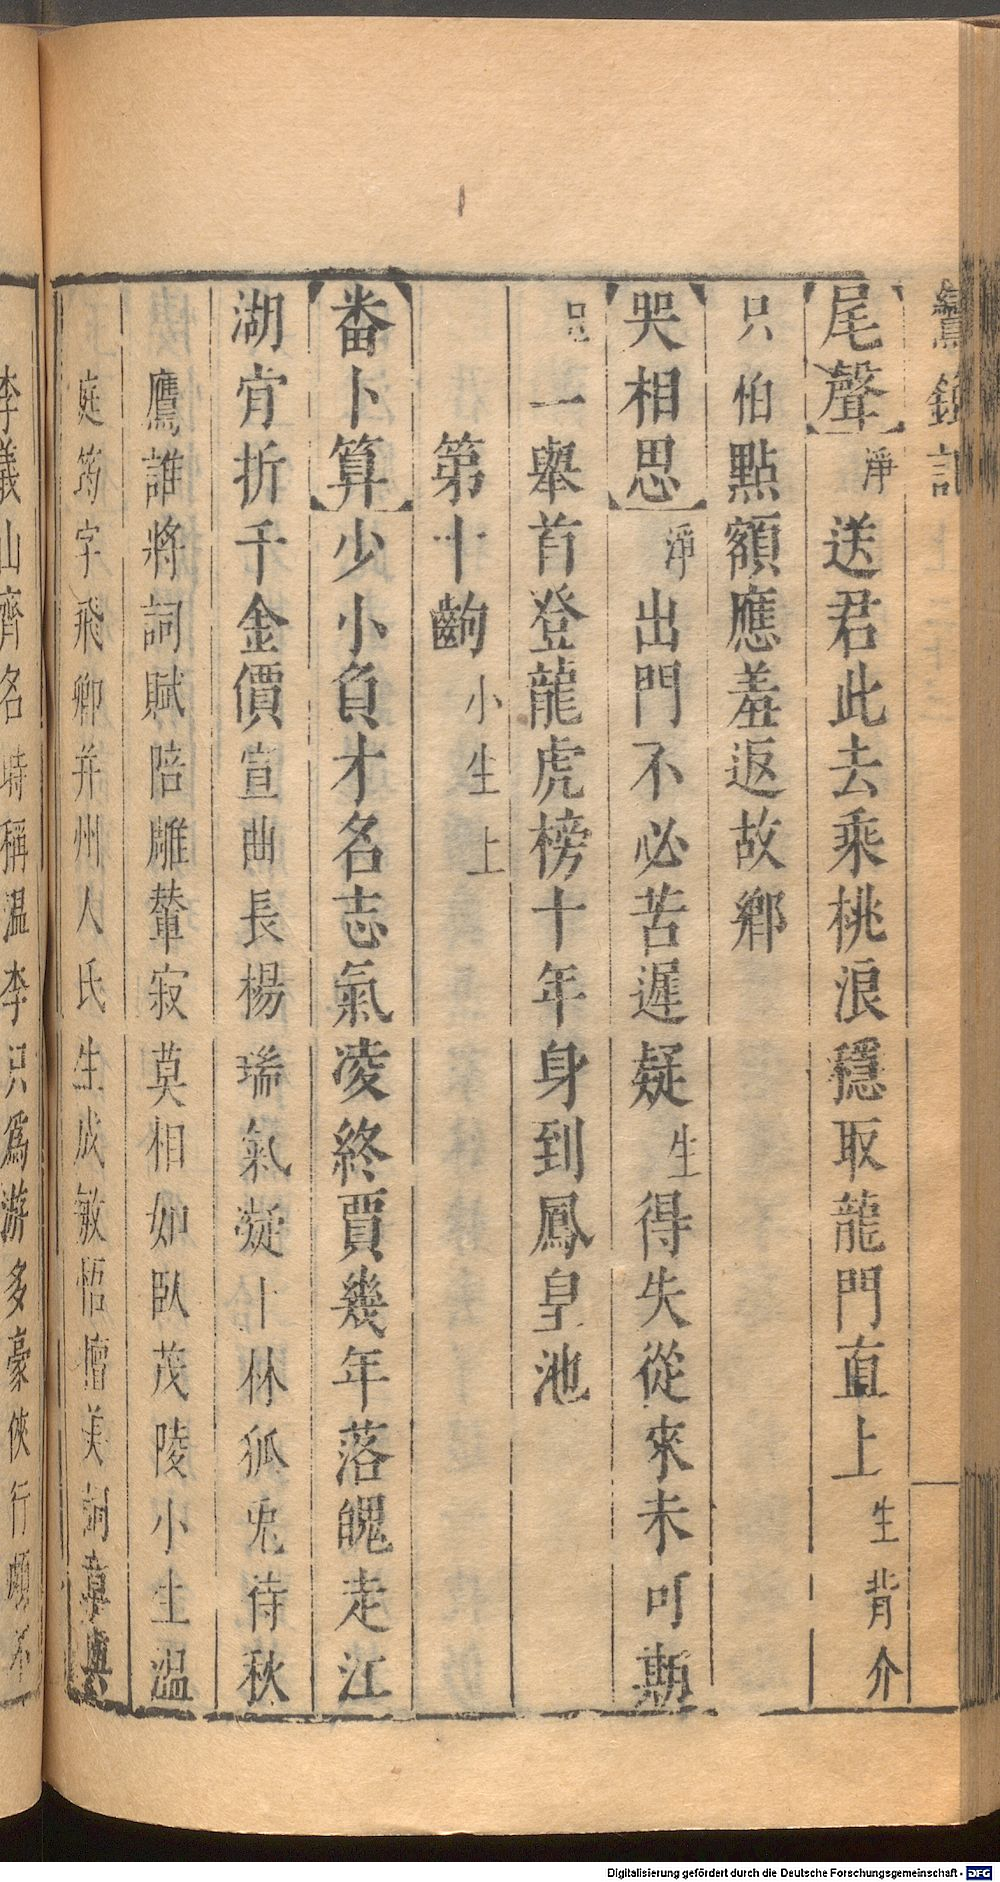 鸞鎞記
尾聲 淨 送君此去乘桃浪穩取龍門直上 生背介
只怕點額應羞返故鄉
哭相思 淨 出門不必苦遲疑 生 得失從來未可期
一舉首登龍虎榜十年身到鳳皇池
第十齣 小生上
番卜算 少小負才名志氣凌終賈幾年落魄走江
湖肯折千金價宣曲長楊瑞氣凝上林狐兎待秋
鷹誰將詞賦陪雕輦寂莫相如臥茂陵小生溫
庭筠字飛卿并州人氏生成敏悟檀美詞章與
李義山齊名時稱溫李只爲游多豪俠行頗不
Digitalisierung gefördert durch die Deutsche Forschungsgemeinschaft - DFG